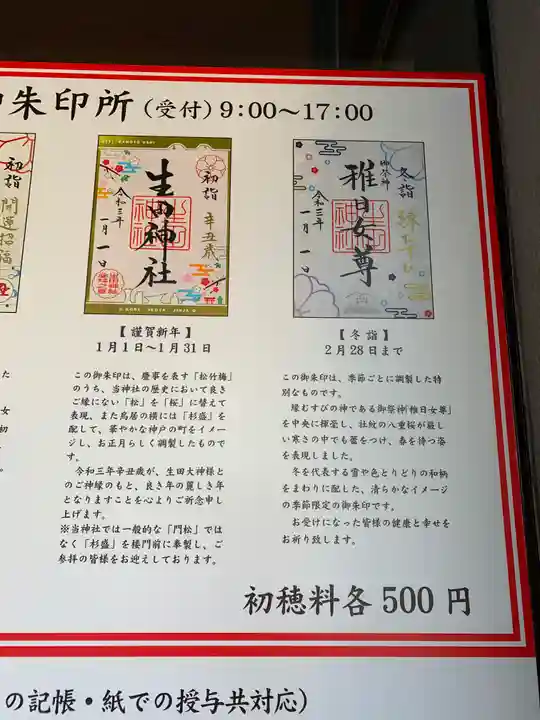 朱印所(受付)9:00〜17:00
初詣
開運招福
生田神社
初詣
辛丑歳
令和三年
一月一日
冬詣
御祭神
稚日女尊
令和三年
一月一日
【謹賀新年】
1月1日〜1月31日
この御朱印は、慶事を表す「松竹梅」
のうち、当神社の歴史において良き
ご縁にない「松」を「桜」に替えて
表現、また鳥居の横には「杉盛」を
配して、華やかな神戸の町をイメー
ジし、お正月らしく調製したもので
す。
令和三年辛丑歳が、生田大神様と
のご神縁のもと、良き年の麗しき年
となりますことを心よりご祈念申し
上げます。
※当神社では一般的な「門松」では
なく「杉盛」を楼門前に奉製し、ご
参拝の皆様をお迎えしております。
【冬詣】
2月28日まで
この御朱印は、季節ごとに調製した特
別なものです。
縁むすびの神である御祭神「稚日女尊」を
中央に揮毫し、社紋の八重桜が厳し
い寒さの中でも蕾をつけ、春を待つ姿
を表現しました。
冬を代表する雪や色とりどりの和柄
をまわりに配した、清らかなイメージ
の季節限定の御朱印です。
お受けになった皆様の健康と幸せを
お祈り致します。
初穂料各500円
の記帳・紙での授与共対応)